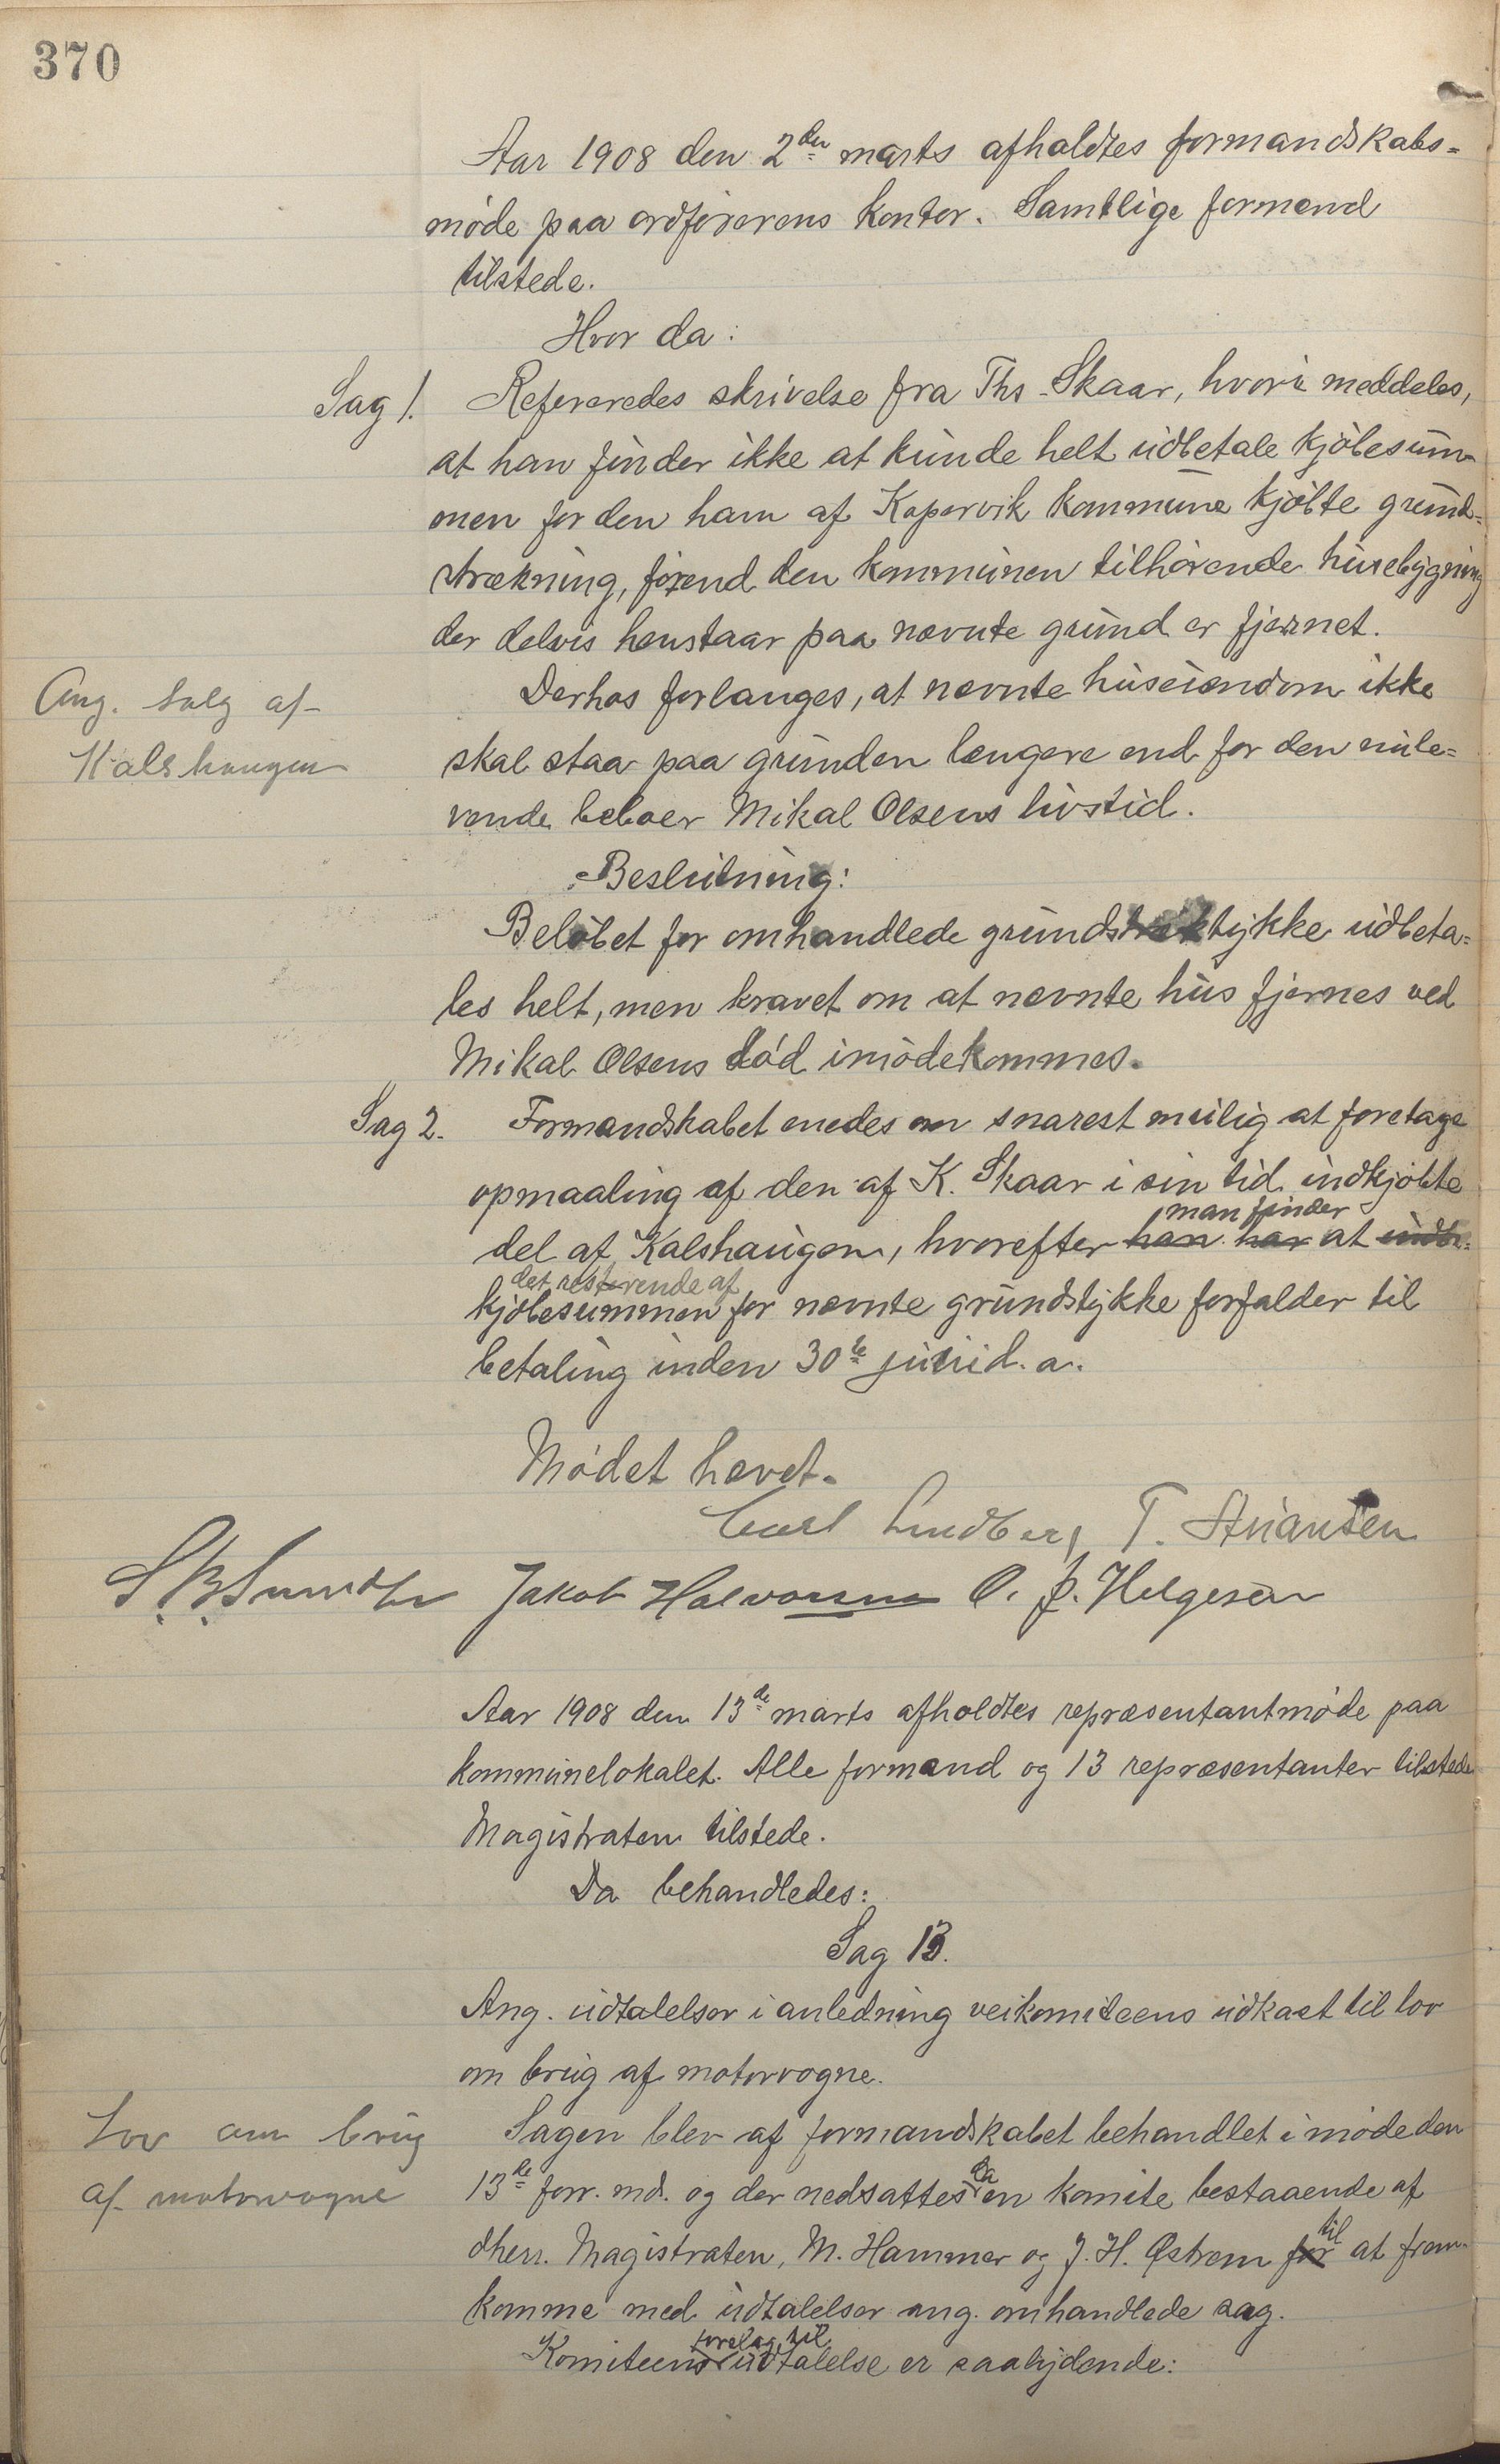 370
Aar 1908 den 2den marts afholdtes formandskabs=
møde paa ordførerens kontor. Samtlige formænd
tilstede.
Hvor da:
Sag 1. Refereredes skrivelse fra Ths. Skaar, hvori meddeles,
at han finder ikke at kunde helt udbetale kjøbesum-
men for den ham af Kopervik kommune kjøbte grund=
strækning, førend den kommunen tilhørende husebygning
der delvis henstaar paa nævnte grund er fjernet.
Ang. salg af
Kalshaugen
Derhos forlanges, at nævnte huseiendom ikke
skal staa paa grunden længere end for den nule=
vende beboer Mikal Olsens livstid.
Beslutning:
Beløbet for omhandlede grundstykke udbeta=
les helt, men kravet om at nævnte hus fjernes ved
Mikal Olsens død imødekommes.
Sag 2. Formandskabet enedes om snarest mulig at foretage
opmaaling af den af K. Skaar i sin tid indkjøbte
man finder
del af Kalshaugen, hvorefter han har at indbe=
det resterende af
kjøbesummen for nævnte grundstykke forfalder til
betaling inden 30te juni d. a.
Mødet hævet.
Carl Lindberg T. Stiansen
S. B. Jakob Halvorsen O. P. Helgesen
Aar 1908 den 13de marts afholdtes repræsentantmøde paa
kommunelokalet. Alle formænd og 13 repræsentanter tilstede
Magistraten tilstede.
Da behandledes:
Sag 13.
Ang. udtalelser i anledning veikomiteens udkast til lov
om brug af motorvogne.
Lov om brug
af motorvogne
Sagen blev af formandskabet behandlet i møde den
13de forr. md. og der nedsattes da en komite bestaaende af
dherr. Magistraten, M. Hammer og J. H. Østrem for til at frem-
komme med udtalelser ang. omhandlede sag.
forslag til
Komiteens udtalelse er saalydende: